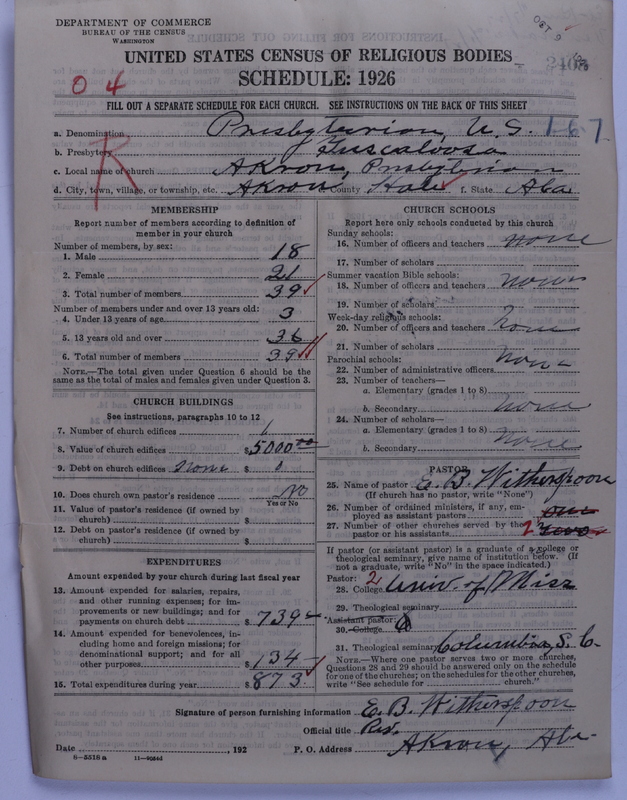 DEPARTMENT OF COMMERCE
BUREAU OF THE CENSUS
WASHINGTON
OCT 9
UNITED STATES CENSUS OF RELIGIOUS BODIES
SCHEDULE: 1926
0 4
FILL OUT A SEPARATE SCHEDULE FOR EACH CHURCH. SEE INSTRUCTIONS ON THE BACK OF THIS SHEET
a. Denomination Presbyterian, U. S. 167
b. Presbytery Tuscaloosa
c. Local name of church Akron, Presbyterian
d. City, town, village, or township, etc. Akron e. County Hale f. State Ala
R
MEMBERSHIP
Report number of members according to definition of
member in your church
Number of members, by sex:
1. Male 18
2. Female 21
3. Total number of members 39
Number of members under and over 13 years old:
4. Under 13 years of age 3
5. 13 years old and over 36
6. Total number of members 39
NOTE.—The total given under Question 6 should be
same as the total of males and females given under Question 3.
CHURCH BUILDINGS
See instructions, paragraphs 10 to 12
7. Number of church edifices 1
8. Value of church edifices $5000.00
9. Debt on church edifices none $ 0
10. Does church own pastor's residence No
Yes or No
11. Value of pastor's residence (if owned by
church) $
12. Debt on pastor's residence (if owned by
church) $
EXPENDITURES
Amount expended by your church during last fiscal year
13. Amount expended for salaries, repairs,
and other running expenses; for im-
provements or new buildings; and for
payments on church debt $ 739
14. Amount expended for benevolences, in-
cluding home and foreign missions; for
denominational support; and for all
other purposes $ 134
15. Total expenditures during year $ 873
CHURCH SCHOOLS
Report here only schools conducted by this church
Sunday schools:
16. Number of officers and teachers none
17. Number of scholars
Summer vacation Bible schools:
18. Number of officers and teachers none
19. Number of scholars
Week-day religious schools:
20. Number of officers and teachers none
21. Number of scholars
Parochial schools:
22. Number of administrative officers none
23. Number of teachers—
a. Elementary (grades 1 to 8)
b. Secondary none
24. Number of scholars—
a. Elementary (grades 1 to 8)
b. Secondary none
PASTOR
25. Name of pastor E. B. Witherspoon
(If church has no pastor, write "None")
26. Number of ordained ministers, if any, em-
ployed as assistant pastors
27. Number of other churches served by the
pastor or his assistants 2
If pastor (or assistant pastor) is a graduate of a college or
theological seminary, give name of institution below. (If
not a graduate, write "No" in the space indicated.)
Pastor: 2
28. College Univ. of Miss
29. Theological seminary
Assistant pastor:
30. College
31. Theological seminary Columbia, S. C.
NOTE.—Where one pastor serves two or more churches,
Questions 28 and 29 should be answered only on the schedule
for one of the churches; on the schedules for the other churches,
write "See schedule for church."
Signature of person furnishing information E. B. Witherspoon
Official title
Date , 192 P. O. Address Akron, Ala.
8—5518 a